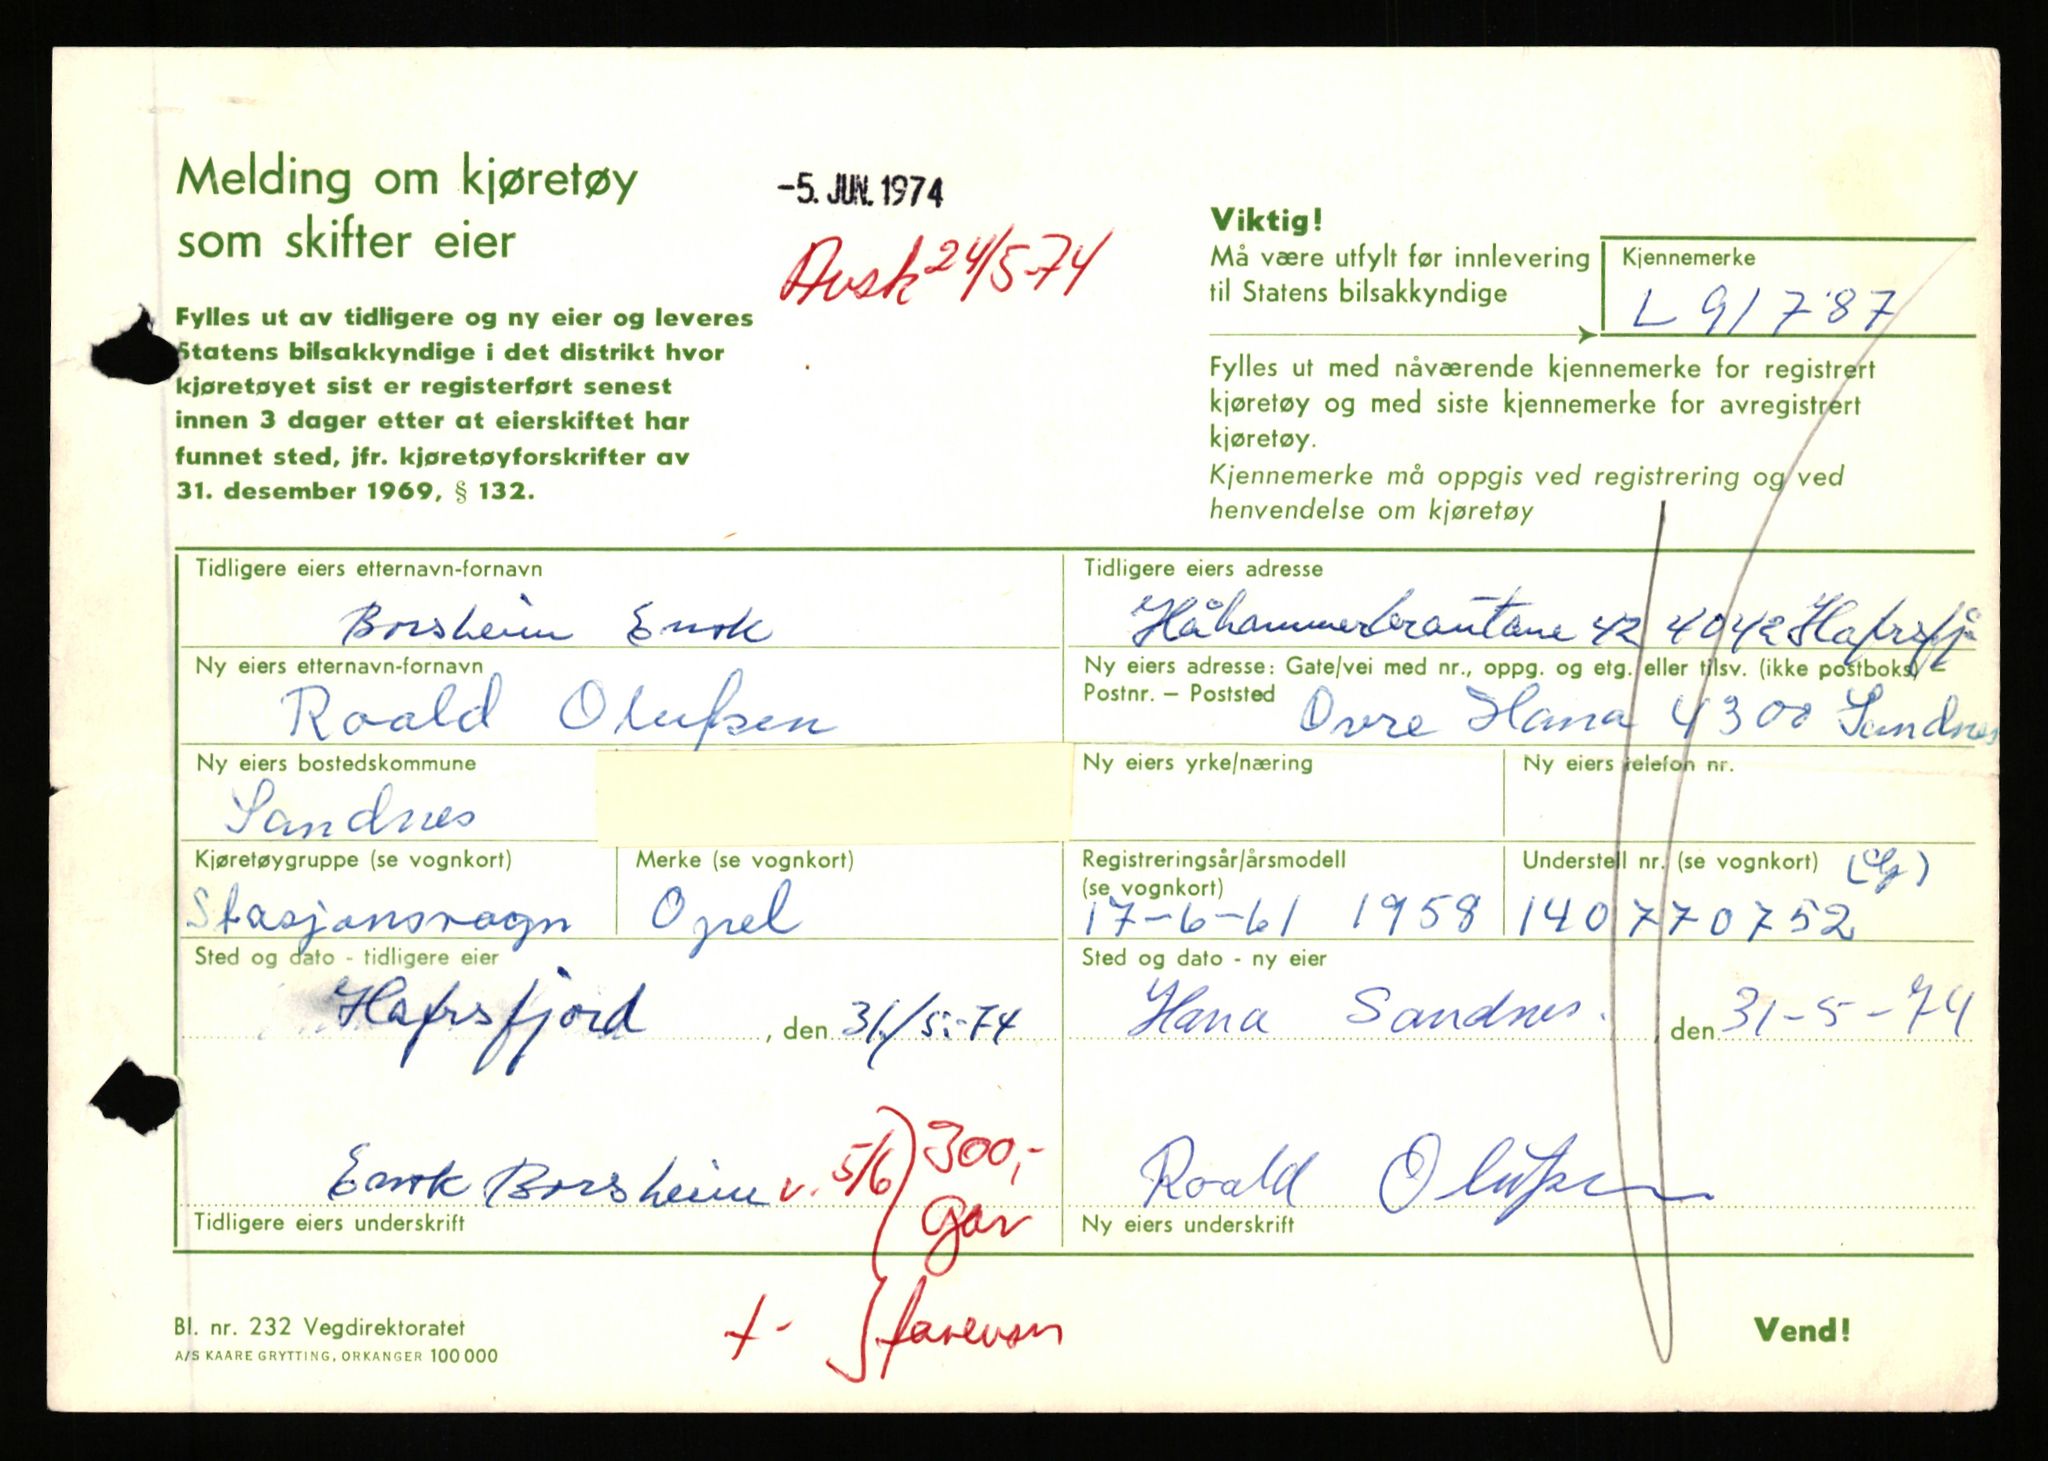 Melding om kjøretøy
som skifter eier
-5. JUN. 1974
Avsk 24/5-74
Fylles ut av tidligere og ny eier og leveres
Statens bilsakkyndige i det distrikt hvor
kjøretøyet sist er registerført senest
innen 3 dager etter at eierskiftet har
funnet sted, jfr. kjøretøyforskrifter av
31. desember 1969, § 132.
Viktig!
Må være utfylt før innlevering
til Statens bilsakkyndige
Kjennemerke
L 91787
Fylles ut med nåværende kjennemerke for registrert
kjøretøy og med siste kjennemerke for avregistrert
kjøretøy.
Kjennemerke må oppgis ved registrering og ved
henvendelse om kjøretøy
Tidligere eiers etternavn-fornavn
Borsheim Enok
Tidligere eiers adresse
Håhammerbrautane 42 4042 Hafrsfj
Ny eiers etternavn-fornavn
Roald Olufsen
Ny eiers adresse: Gate/vei med nr., oppg. og etg. eller tilsv. (ikke postboks)
Postnr. – Poststed
Ovre Hana 4300 Sandnes
Ny eiers bostedskommune
Sandnes
Ny eiers yrke/næring
Ny eiers telefon nr.
Kjøretøygruppe (se vognkort)
Stasjonsvogn
Merke (se vognkort)
Opel
Registreringsår/årsmodell
(se vognkort)
17-6-61 1958
Understell nr. (se vognkort)
140770752
Sted og dato - tidligere eier
Hafrsfjord, den 31/5.-74
Sted og dato - ny eier
Hana Sandnes., den 31-5-74
Enok Borsheim v. 5/6 300,-
Gar
Tidligere eiers underskrift
Roald Olufsen
Ny eiers underskrift
Bl. nr. 232 Vegdirektoratet
A/S KAARE GRYTTING, ORKANGER 100 000
Vend!